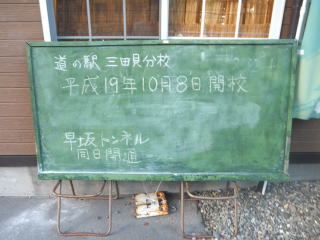 道の駅 三田貝分校
平成19年10月8日開校
早坂トンネル
同日開通